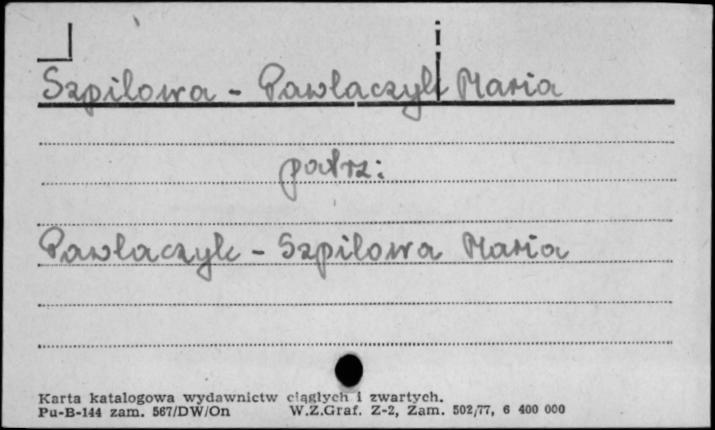 Szpilowa - Pawlaczyk Maria
patrz:
Pawlaczyk - Szpilowa Maria
Karta katalogowa wydawnictw ciągłych i zwartych.
Pu-B-144 zam. 567/DW/On W.Z.Graf. Z-2, Zam. 502/77, 6 400 000